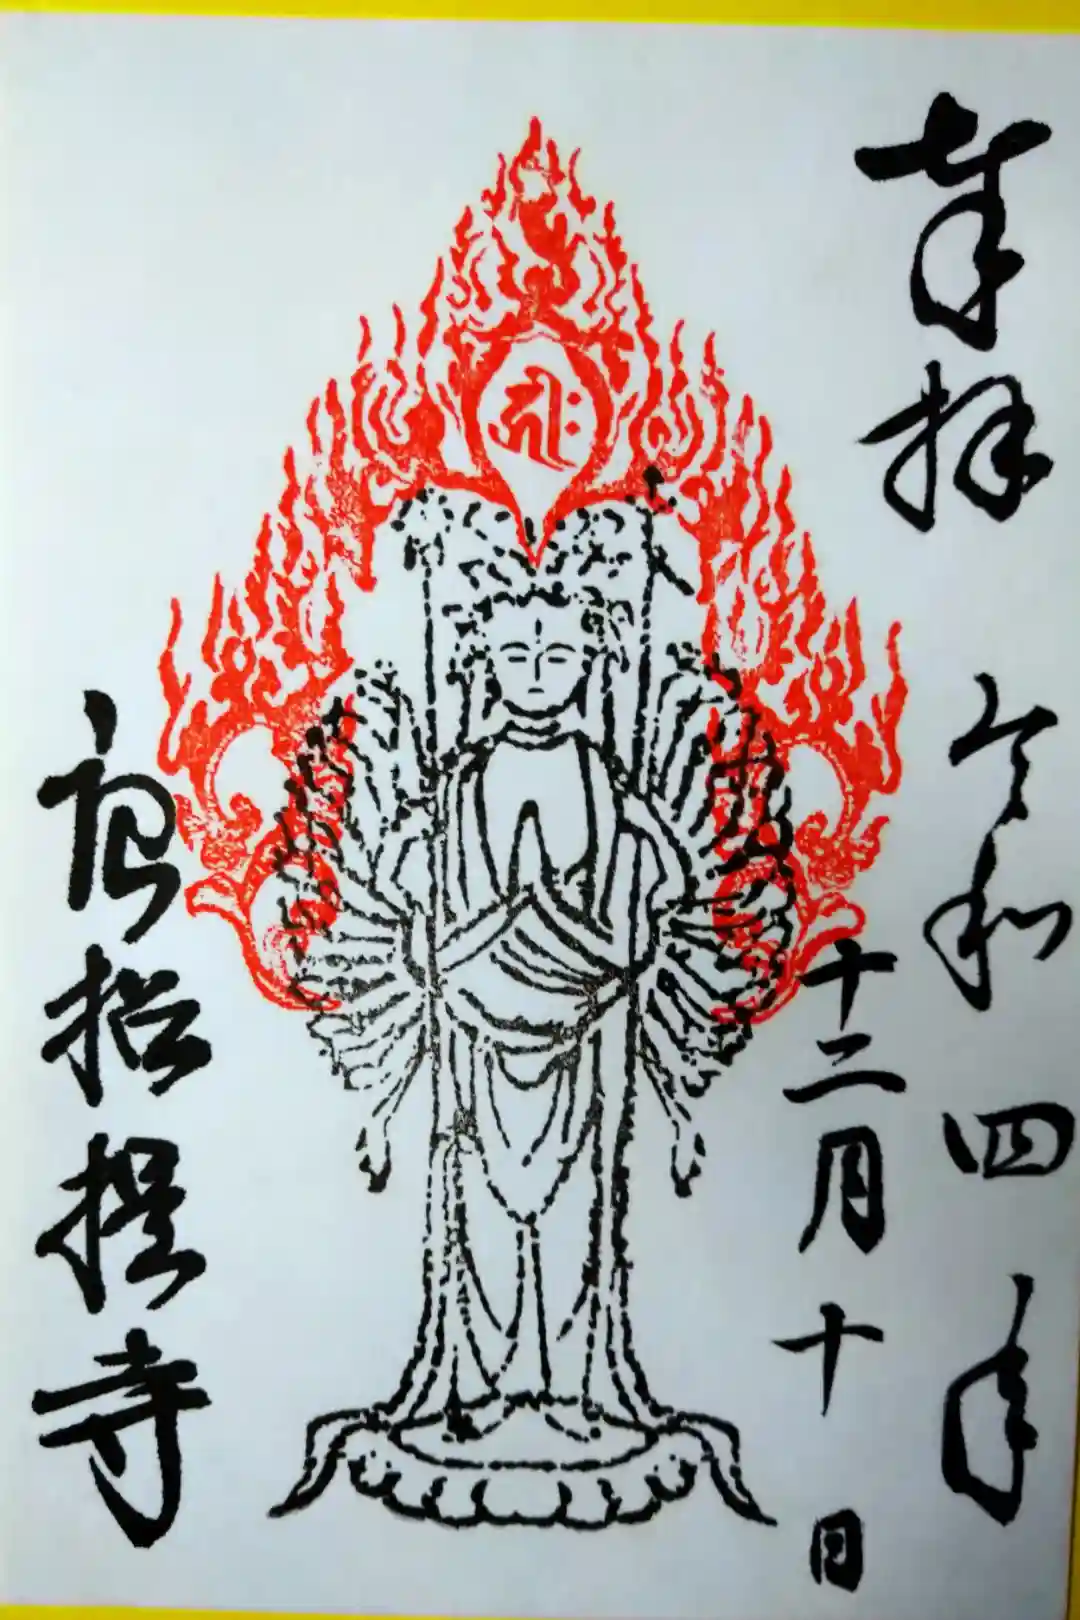 奉拝
令和四年
十二月十日
唐招提寺
𑖮𑖿𑖨𑖱𑖾